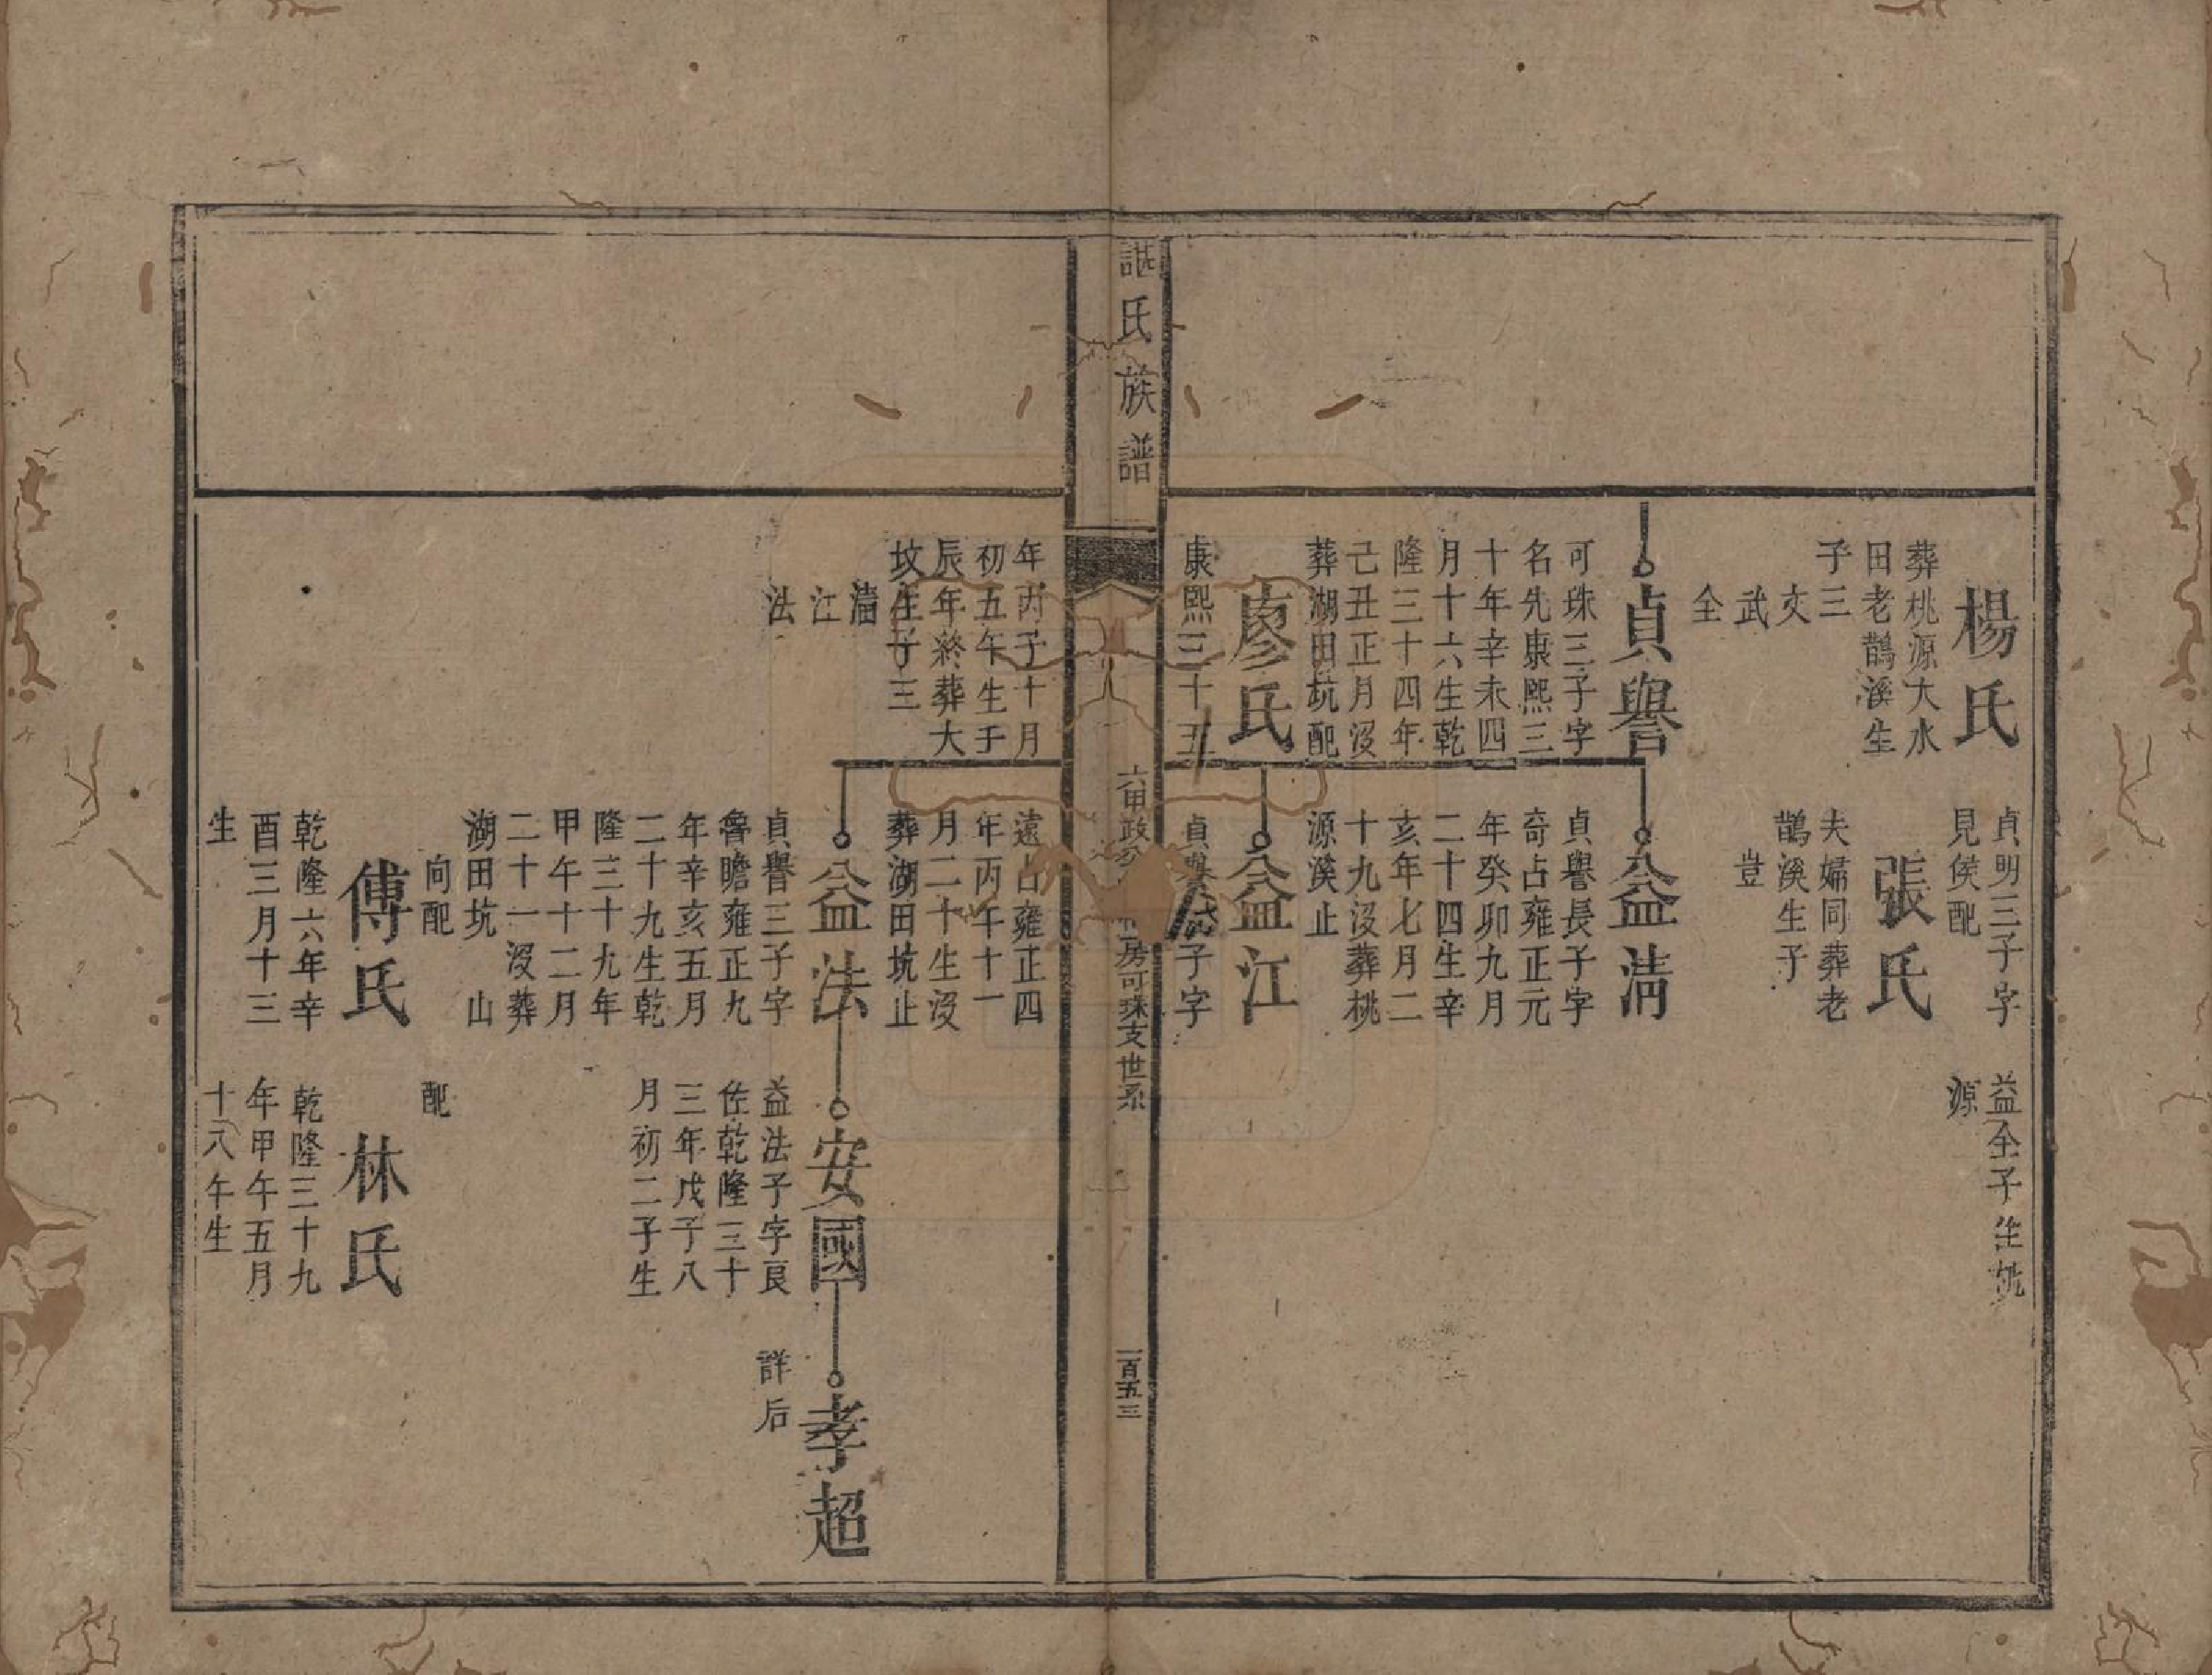 楊氏
葬桃源大水
田老鵲溪生
子三
文
武
全
貞譽
可珠三子字
名先康熙三
十年辛未四
月十六生乾
隆三十四年
己丑正月沒
葬湖田坑配
廖氏
康熙三十五
貞明三子字
見侯配
張氏
夫婦同葬老
鵲溪生子
豈
益清
貞譽長子字
奇占雍正元
年癸卯九月
二十四生辛
亥年七月二
十九沒葬桃
源溪止
益江
貞譽次子字
益全子生坑
源
氏族譜
六甲政
房可珠支世系
一百五三
年丙子十月
初五午生壬
辰年終葬大
坟生子三
清
江
法
遠占雍正四
年丙午十一
月二十生沒
葬湖田坑止
益法
貞譽三子字
魯瞻雍正九
年辛亥五月
二十九生乾
隆三十九年
甲午十二月
二十一沒葬
湖田坑 山
向配
傅氏
乾隆六年辛
酉三月十三
生
安國
益法子字良
佐乾隆三十
三年戊子八
月初二子生
配
林氏
乾隆三十九
年甲午五月
十八午生
孝超
詳后